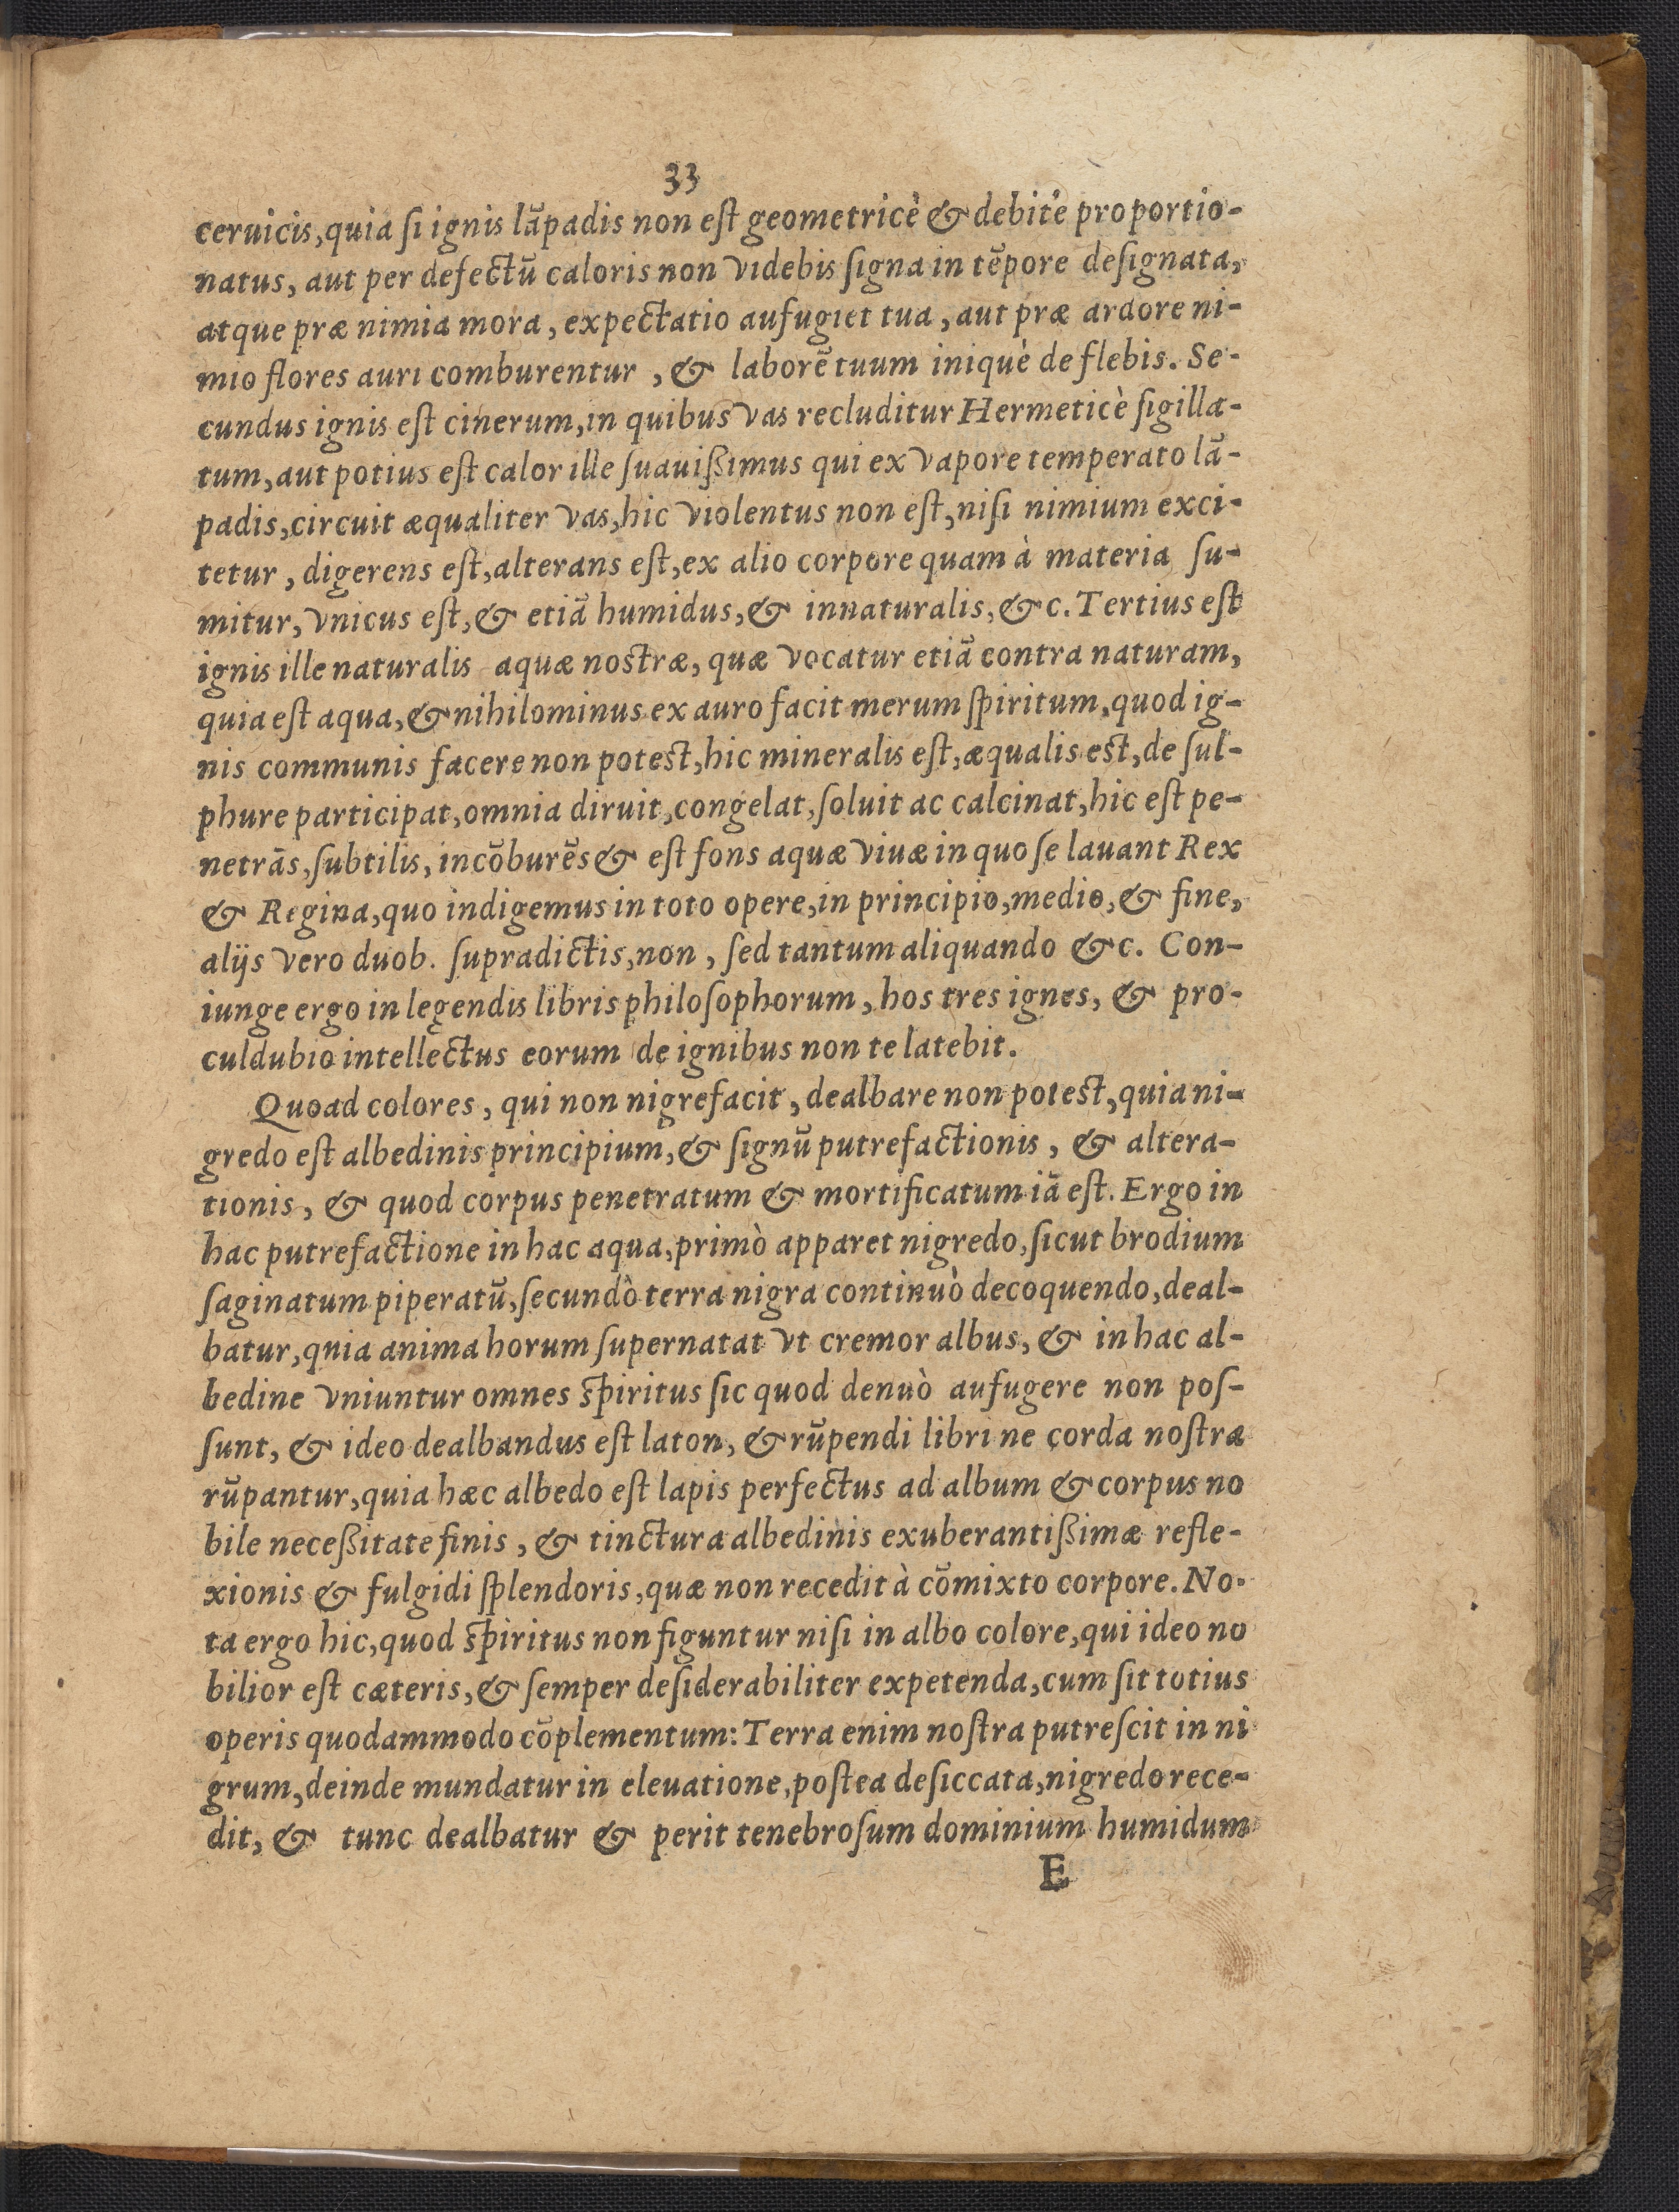 33
ceruicis, quia ſi ignis lãpadis non eſt geometricè & debitè proportio-
natus, aut per defectũ caloris non videbis ſigna in tẽpore deſignata,
atque præ nimia mora, expectatio aufugiet tua, aut præ ardore ni-
mio flores auri comburentur, & laborẽ tuum iniquè deflebis. Se-
cundus ignis eſt cinerum, in quibus vas recluditur Hermeticè ſigilla-
tum, aut potius eſt calor ille ſuauißimus qui ex vapore temperato lã-
padis, circuit æqualiter vas, hic violentus non eſt, niſi nimium exci-
tetur, digerens eſt, alterans eſt, ex alio corpore quam à materia ſu-
mitur, vnicus eſt, & etiã humidus, & innaturalis, &c. Tertius eſt
ignis ille naturalis aquæ noſtræ, quæ vocatur etiã contra naturam,
quia est aqua, & nihilominus ex auro facit merum ſpiritum, quod ig-
nis communis facere non potest, hic mineralis eſt, æqualis est, de ſul-
phure participat, omnia diruit, congelat, ſoluit ac calcinat, hic eſt pe-
netrãs, ſubtilis, incõburẽs & eſt fons aquæ viuæ in quo ſe lauant Rex
& Regina, quo indigemus in toto opere, in principio, medio, & fine,
alijs vero duob. ſupradictis, non, ſed tantum aliquando &c. Con-
iunge ergo in legendis libris philoſophorum, hos tres ignes, & pro-
culdubio intellectus eorum de ignibus non te latebit.
Quoad colores, qui non nigrefacit, dealbare non potest, quia ni-
gredo eſt albedinis principium, & ſignũ putrefactionis, & altera-
tionis, & quod corpus penetratum & mortificatum iã eſt. Ergo in
hac putrefactione in hac aqua, primò apparet nigredo, ſicut brodium
ſaginatum piperatũ, ſecundò terra nigra continuò decoquendo, deal-
batur, qnia anima horum ſupernatat vt cremor albus, & in hac al-
bedine vniuntur omnes ſpiritus ſic quod denuò aufugere non poſ-
ſunt, & ideo dealbandus eſt laton, & rũpendi libri ne corda noſtra
rũpantur, quia hæc albedo eſt lapis perfectus ad album & corpus no
bile neceßitate finis, & tinctura albedinis exuberantißimæ refle-
xionis & fulgidi ſplendoris, quæ non recedit à cõmixto corpore. No-
ta ergo hic, quod ſpiritus non figuntur niſi in albo colore, qui ideo no
bilior eſt cæteris, & ſemper deſiderabiliter expetenda, cum ſit totius
operis quodammodo cõplementum: Terra enim noſtra putreſcit in ni
grum, deinde mundatur in eleuatione, poſtea deſiccata, nigredo rece-
dit, & tunc dealbatur & perit tenebroſum dominium humidum
E